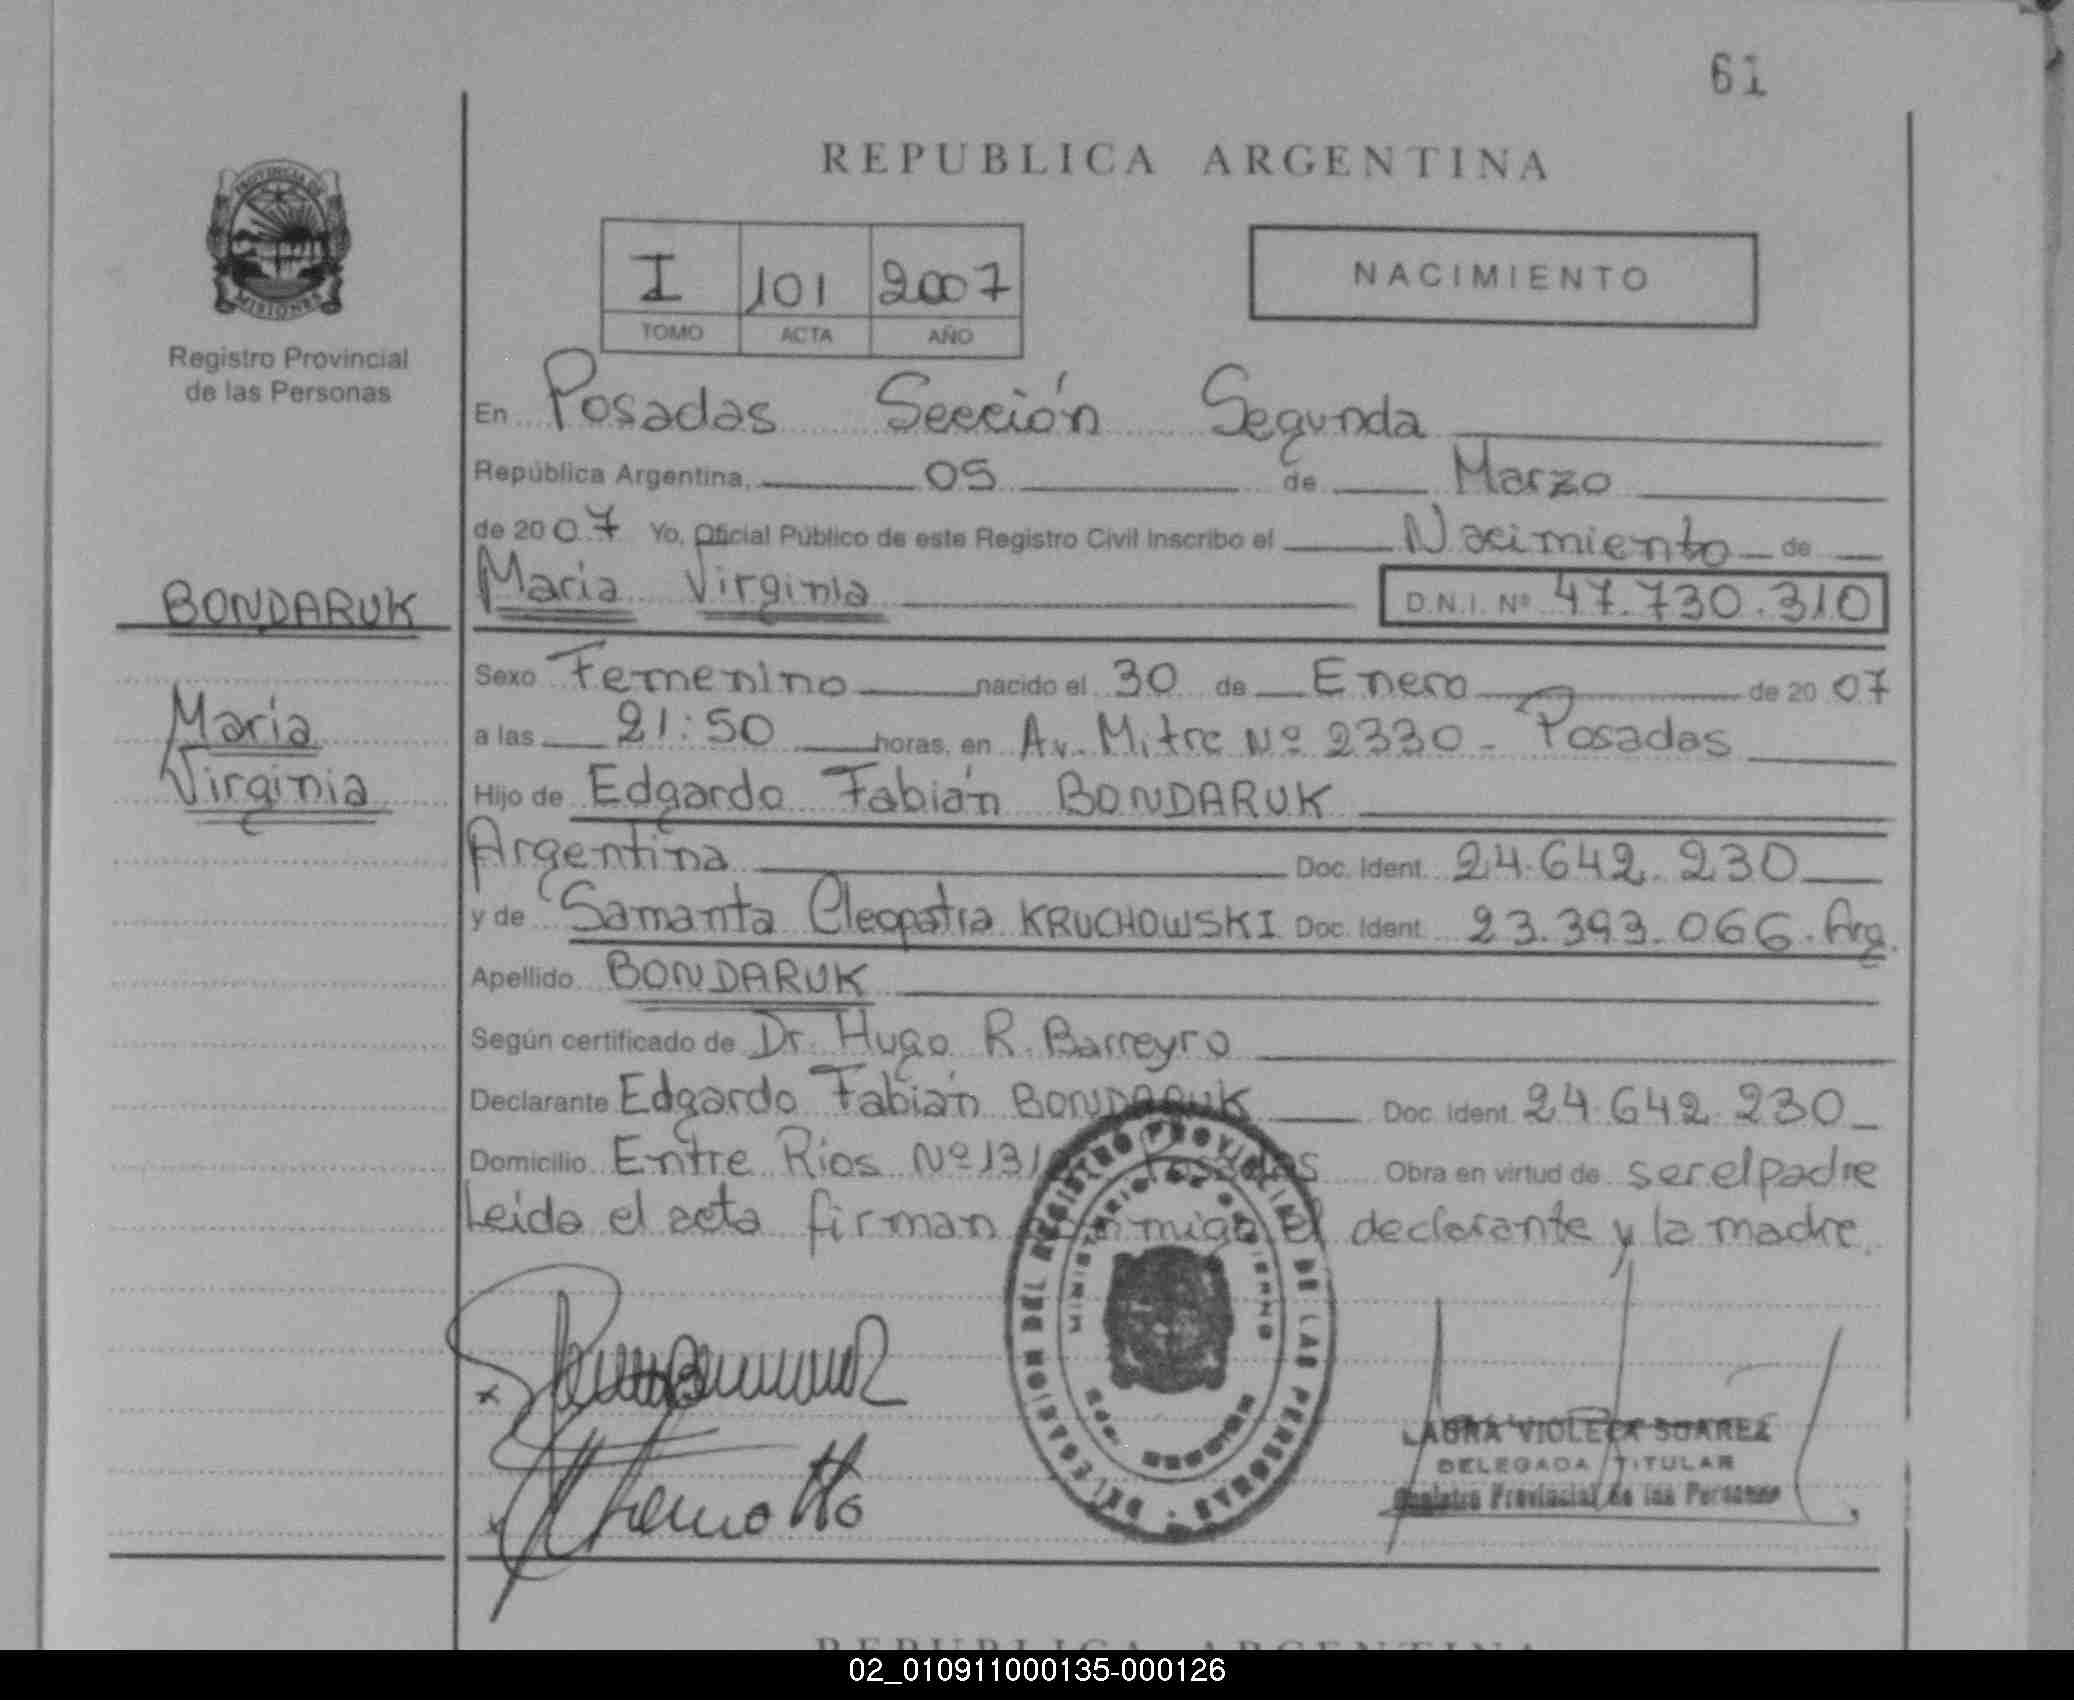 61
REPUBLICA ARGENTINA
PROVINCIA DE
MISIONES
Registro Provincial
de las Personas
I 101 2007
TOMO ACTA AÑO
NACIMIENTO
En Posadas Sección Segunda
República Argentina, 05 de Marzo
de 2007 Yo, Oficial Público de este Registro Civil Inscribo el Nacimiento de
BONDARUK
Maria Virginia D.N.I. Nº 47.730.310
Maria
Virginia
Sexo Femenino nacido el 30 de Enero de 2007
a las 21:50 horas, en Av. Mitre Nº 2330 - Posadas
Hijo de Edgardo Fabián BONDARUK
Argentina Doc. Ident. 24.642.230
y de Samanta Cleopatra KRUCHOWSKI Doc. Ident. 23.393.066. Arg.
Apellido BONDARUK
Según certificado de Dr. Hugo R. Barreyro
Declarante Edgardo Fabián BONDARUK Doc. Ident. 24.642.230
Domicilio Entre Rios Nº 131 Posadas Obra en virtud de ser el padre
Leida el acta firman conmigo el declarante y la madre.
DELEGACION DEL REGISTRO PROVINCIAL DE LAS PERSONAS
MINISTERIO DE GOBIERNO
LAURA VIOLETA SUAREZ
DELEGADA TITULAR
Registro Provincial de las Personas
REPUBLICA ARGENTINA
02_010911000135-000126